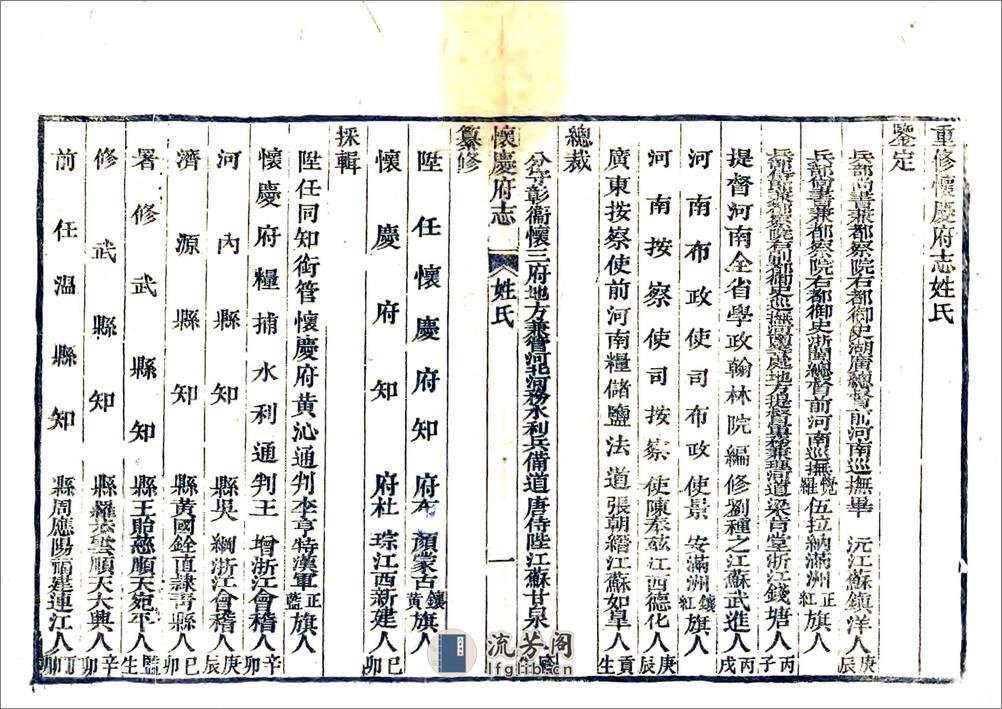 重修懷慶府志姓氏
鑒定
兵部尚書兼都察院右都御史湖廣總督前河南巡撫畢 沅江蘇鎮洋人庚辰
兵部尚書兼都察院右都御史浙閩總督前河南巡撫覺羅伍拉納滿洲正紅旗人
兵部侍郎兼都察院右副都御史巡撫河南等處地方提督軍務兼理河道梁肯堂浙江錢塘人丙子
提督河南全省學政翰林院編修劉種之江蘇武進人丙戌
河南布政使司布政使景 安滿洲鑲紅旗人
河南按察使司按察使陳奉茲江西德化人庚辰
廣東按察使前河南糧儲鹽法道張朝縉江蘇如皐人貢生
總裁
分守彰衞懷三府地方兼管河北河務水利兵備道唐侍陛江蘇甘泉人
懷慶府志 姓氏 一
纂修
陞任懷慶府知府布 顏蒙古鑲黃旗人
懷慶府知府杜 琮江西新建人己卯
採輯
陞任同知銜管懷慶府黃沁通判李亨特漢軍正藍旗人
懷慶府糧捕水利通判王 增浙江會稽人辛卯
河內縣知縣吳 綱浙江會稽人庚辰
濟源縣知縣黃國銓直隸青縣人己卯
署修武縣知縣王貽慈順天宛平人監生
修武縣知縣羅雲順天大興人辛卯
前任溫縣知縣周應陽福建連江人丁卯
流芳阁
lfglib.com